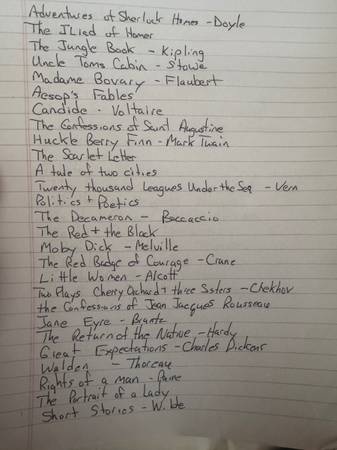 Adventures of Sherlock Homes - Doyle
The ILiad of Homer
The Jungle Book - Kipling
Uncle Toms Cabin - Stowe
Madame Bovary - Flaubert
Aesop's Fables
Candide - Voltaire
The Confessions of Saint Augustine
Huckle Berry Finn - Mark Twain
The Scarlet Letter
A tale of two cities
Twenty thousand Leagues Under the Sea - Vern
Politics + Poetics
The Decameron - Baccaccio
The Red + the Black
Moby Dick - Melville
The Red Badge of Courage - Crane
Little Women - Alcott
Two Plays Cherry Orchard + three Sisters - Chekhov
the Confessions of Jean Jacques Rousseau
Jane Eyre - Bronte
The Return of the Native - Hardy
Great Expectations - Charles Dickens
Walden - Thoreau
Rights of a man - Paine
The Portrait of a Lady
Short Stories - Wilde